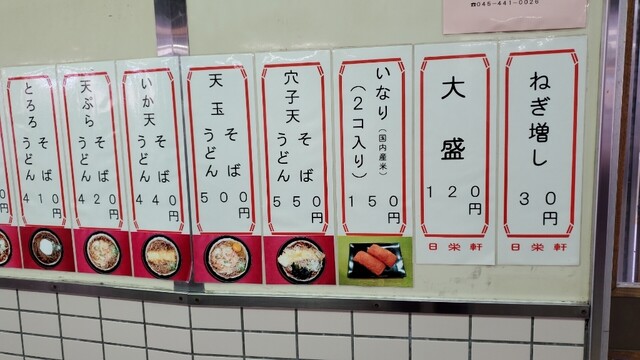 ☎046-441-0026
ねぎ増し
30円
日栄軒
大盛
120円
日栄軒
いなり(国内産米)
(2コ入り)
150円
穴子天そばうどん
550円
天玉そばうどん
500円
いか天そばうどん
440円
天ぷらそばうどん
420円
とろろそばうどん
410円
円